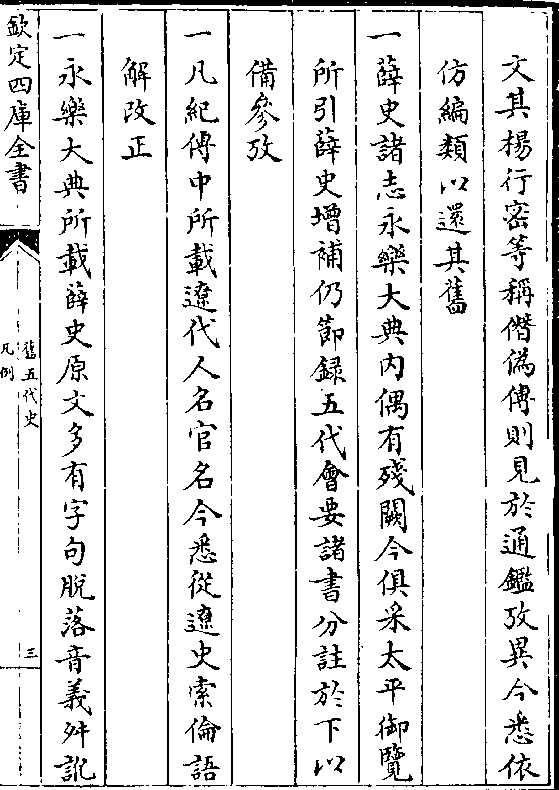 文其楊行密等稱僭偽傳則見於通鑑攷異今悉依
仿編類以還其舊
一薛史諸志永樂大典内偶有殘闕今俱采太平御覽
所引薛史增補仍節録五代會要諸書分註於下以
備參攷
一凡紀傳中所載遼代人名官名今悉從遼史索倫語
解改正
一永樂大典所載薛史原文多有字句脫落音義舛訛
欽定四庫全書
舊五代史
凡例
三